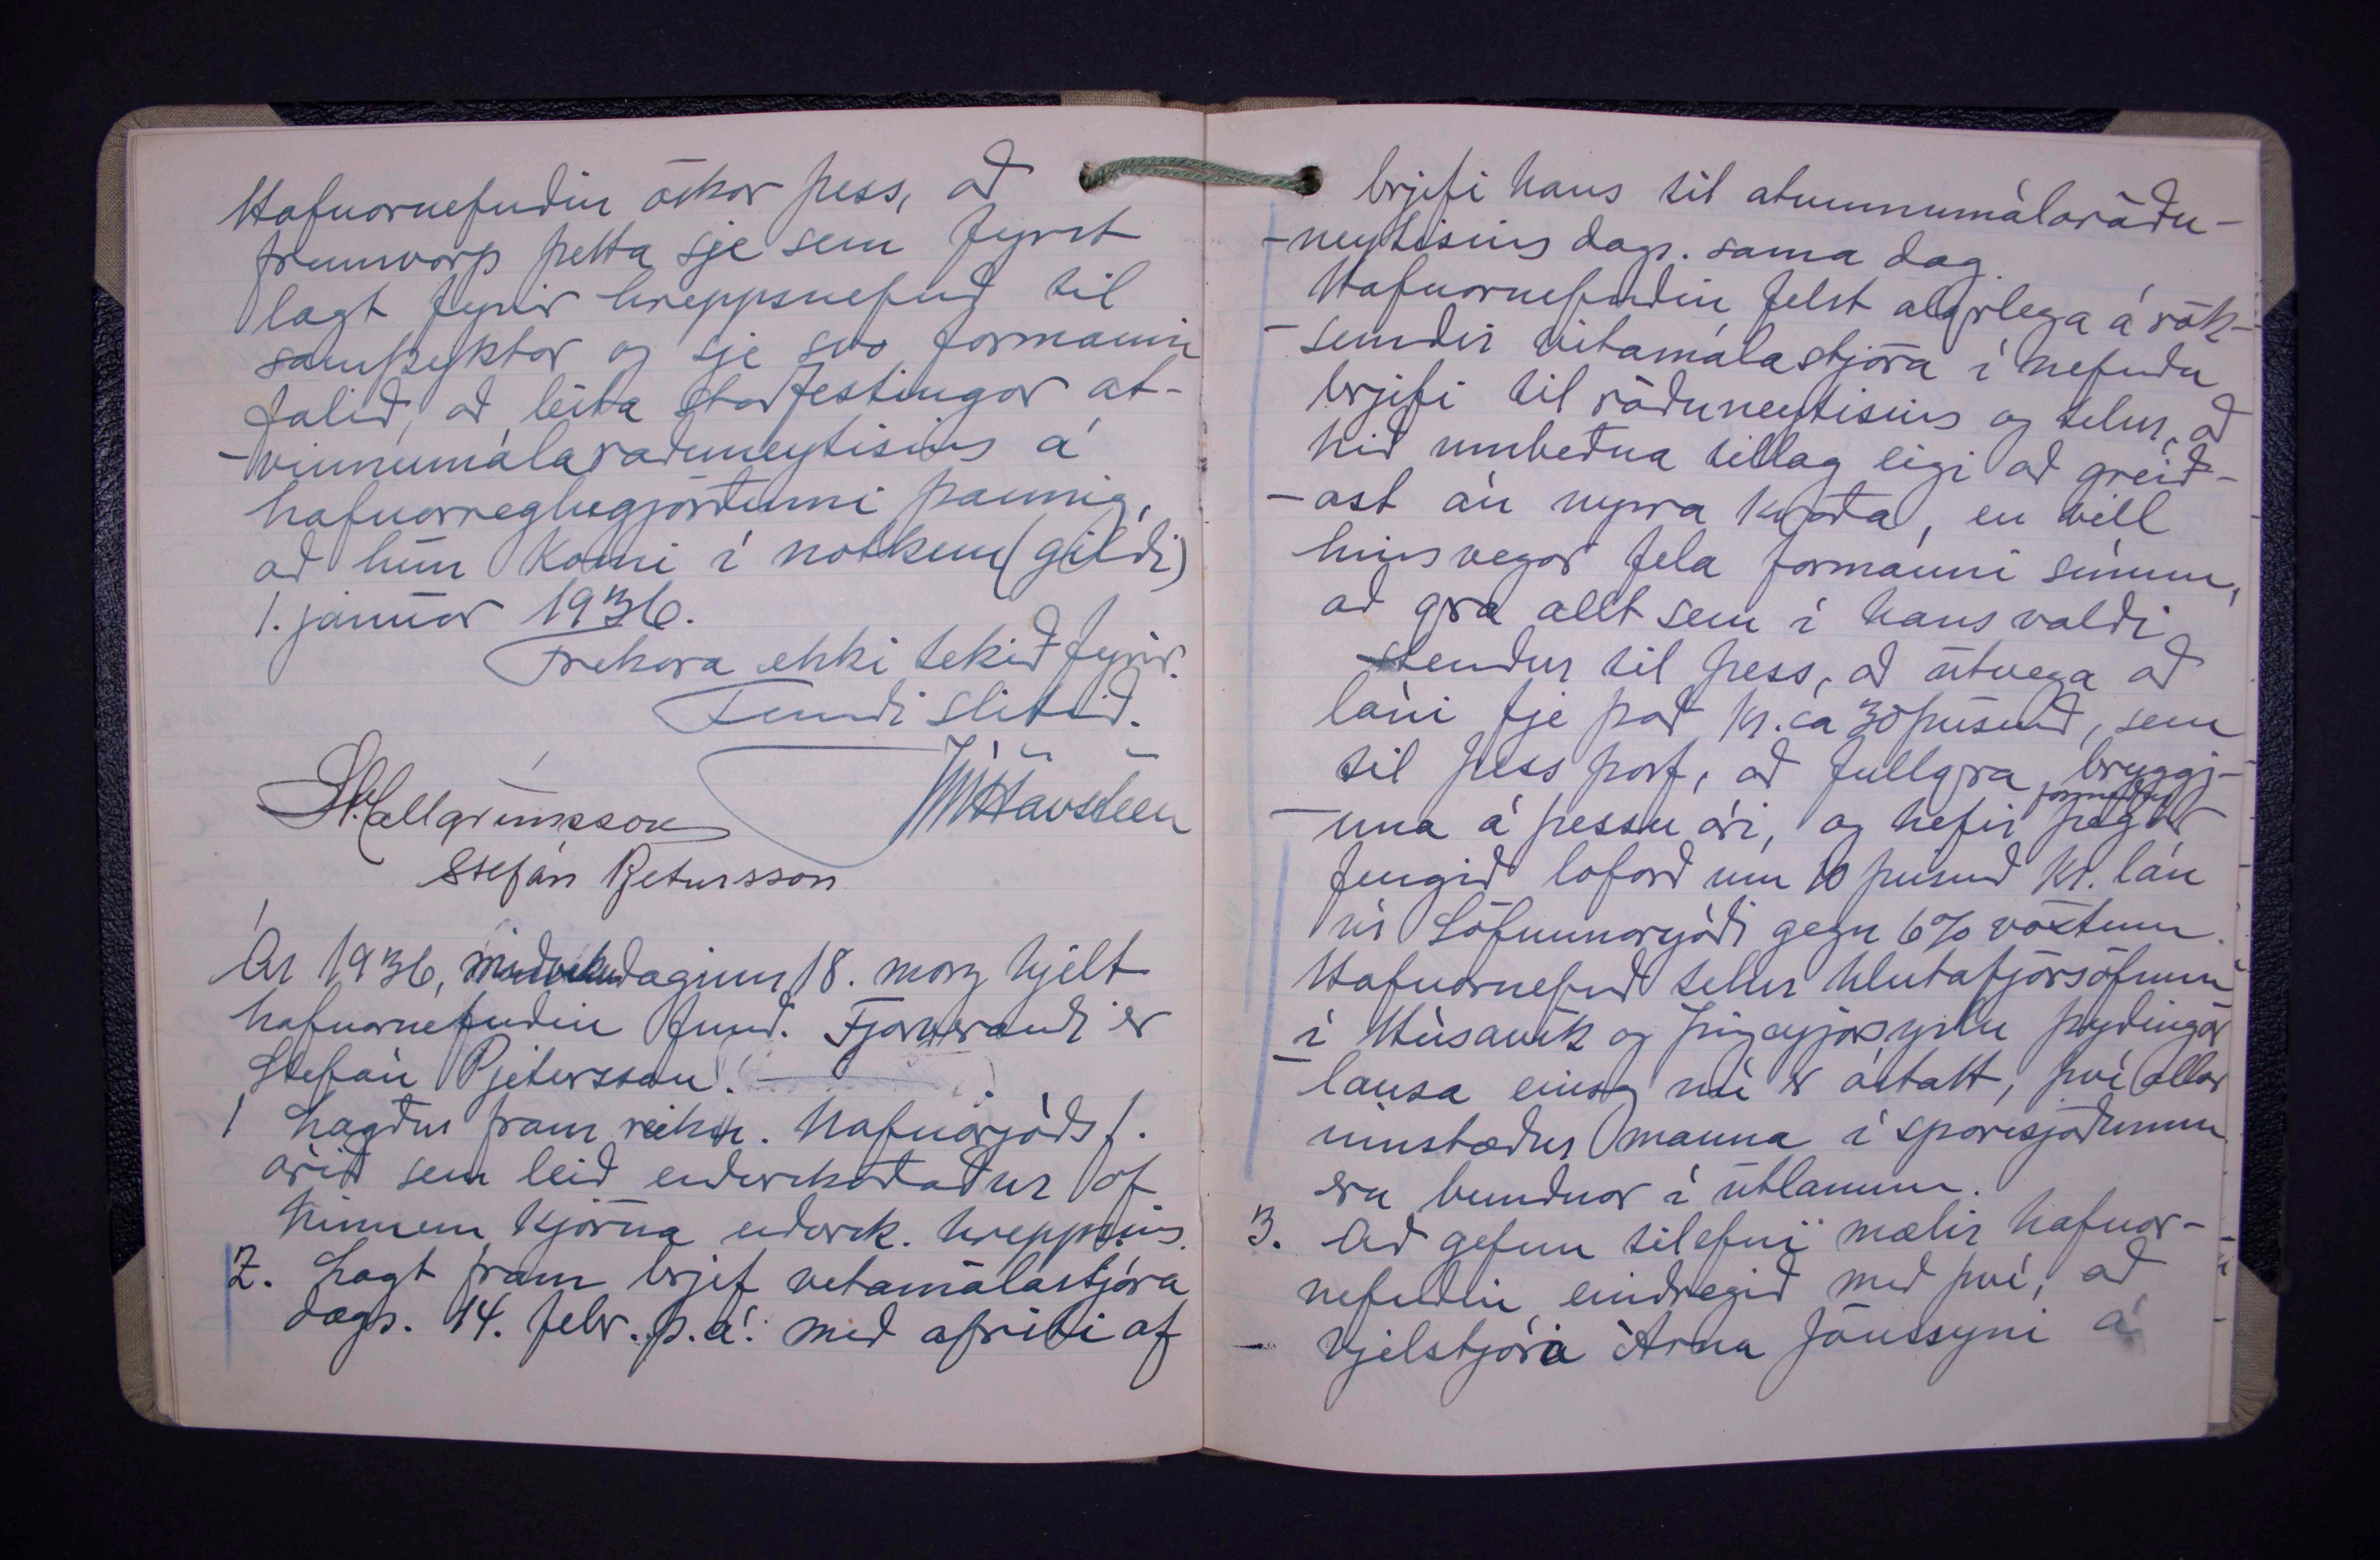 Hafnarnefndin óskar þess, að
frumvarp þetta sje sem fyrst
lagt fyrir hreppsnefnd til
samþyktar og sje svo formanni
falið, að leita staðfestingar at-
-vinnumálaráðuneytisins á
hafnarreglugjörðinni þannig,
að hún komi í notkun (gildi)
1. janúar 1936.
Frekara ekki tekið fyrir.
Fundi slitið.
St. Hallgrímsson JúlHavsteen
Stefán Pjetursson
Ár 1936, miðvikudaginn 18. marz hjelt
hafnarnefndin fund. Fjarverandi er
Stefán Pjetursson.
1 Lagður fram reikn. Hafnarsjóðs f.
árið sem leið endurskoðaður af
hinum kjörna endursk. hreppsins.
2. Lagt fram brjef vitamálastjóra
dags. 14. febr. þ.á. með afriti af
brjefi hans til atvinnumálaráðu-
-neytisins dags. sama dag.
Hafnarnefndin felst algjrlega á rök-
-semdir vitamálastjóra í nefndu
brjefi til ráðuneytisins og telur, að
hið umbeðna tillag eigi að greið-
-ast án nýrra kvaða, en vill
hinsvegar fela formanni sínum,
að gjra allt sem í hans valdi
stendur til þess, að útvega að
láni fje það kr. ca 30 þúsund, sem
til þess þarf, að fullgjra bryggj-
-una á þessu ári, og hefir formaður þegar
fengið loforð um 10 þúsund kr. lán
úr Söfnunarsjóði gegn 6% vöxtum.
Hafnarnefnd telur hlutafjársöfnun
í Húsavík og Þingeyjarsýslu þýðingar
-lausa eins og nú er ástatt, því allar
innstæður manna í sparisjóðunum
eru bundnar í útlánum.
3. Að gefnu tilefni mælir hafnar-
nefndin eindregið með því, að
vjelstjóra Árna Jónssyni á